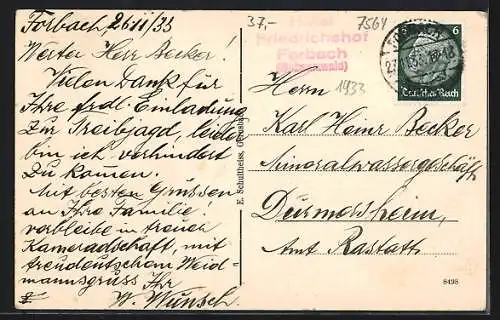 Forbach, 26.11/33
Werter Herr Becker!
Vielen Dank für
Ihre frdl. Einladung
zur Treibjagd, leider
bin ich verhindert
zu komen.
Mit besten Grüssen
an Ihre Familie.
verbleibe in treuer
Kameradschaft, mit
treudeutschem Weid-
mannsgruss Ihr
W. Wunsch.
E. Schultheiss,
37,-
7564
Hotel
Friedrichshof
Forbach
(Murgtal)
1933
6
Deutsches Reich
Herrn
Karl Heinr Becker
Mineralwassergeschäft
Durmersheim,
Amt Rastatt
8498